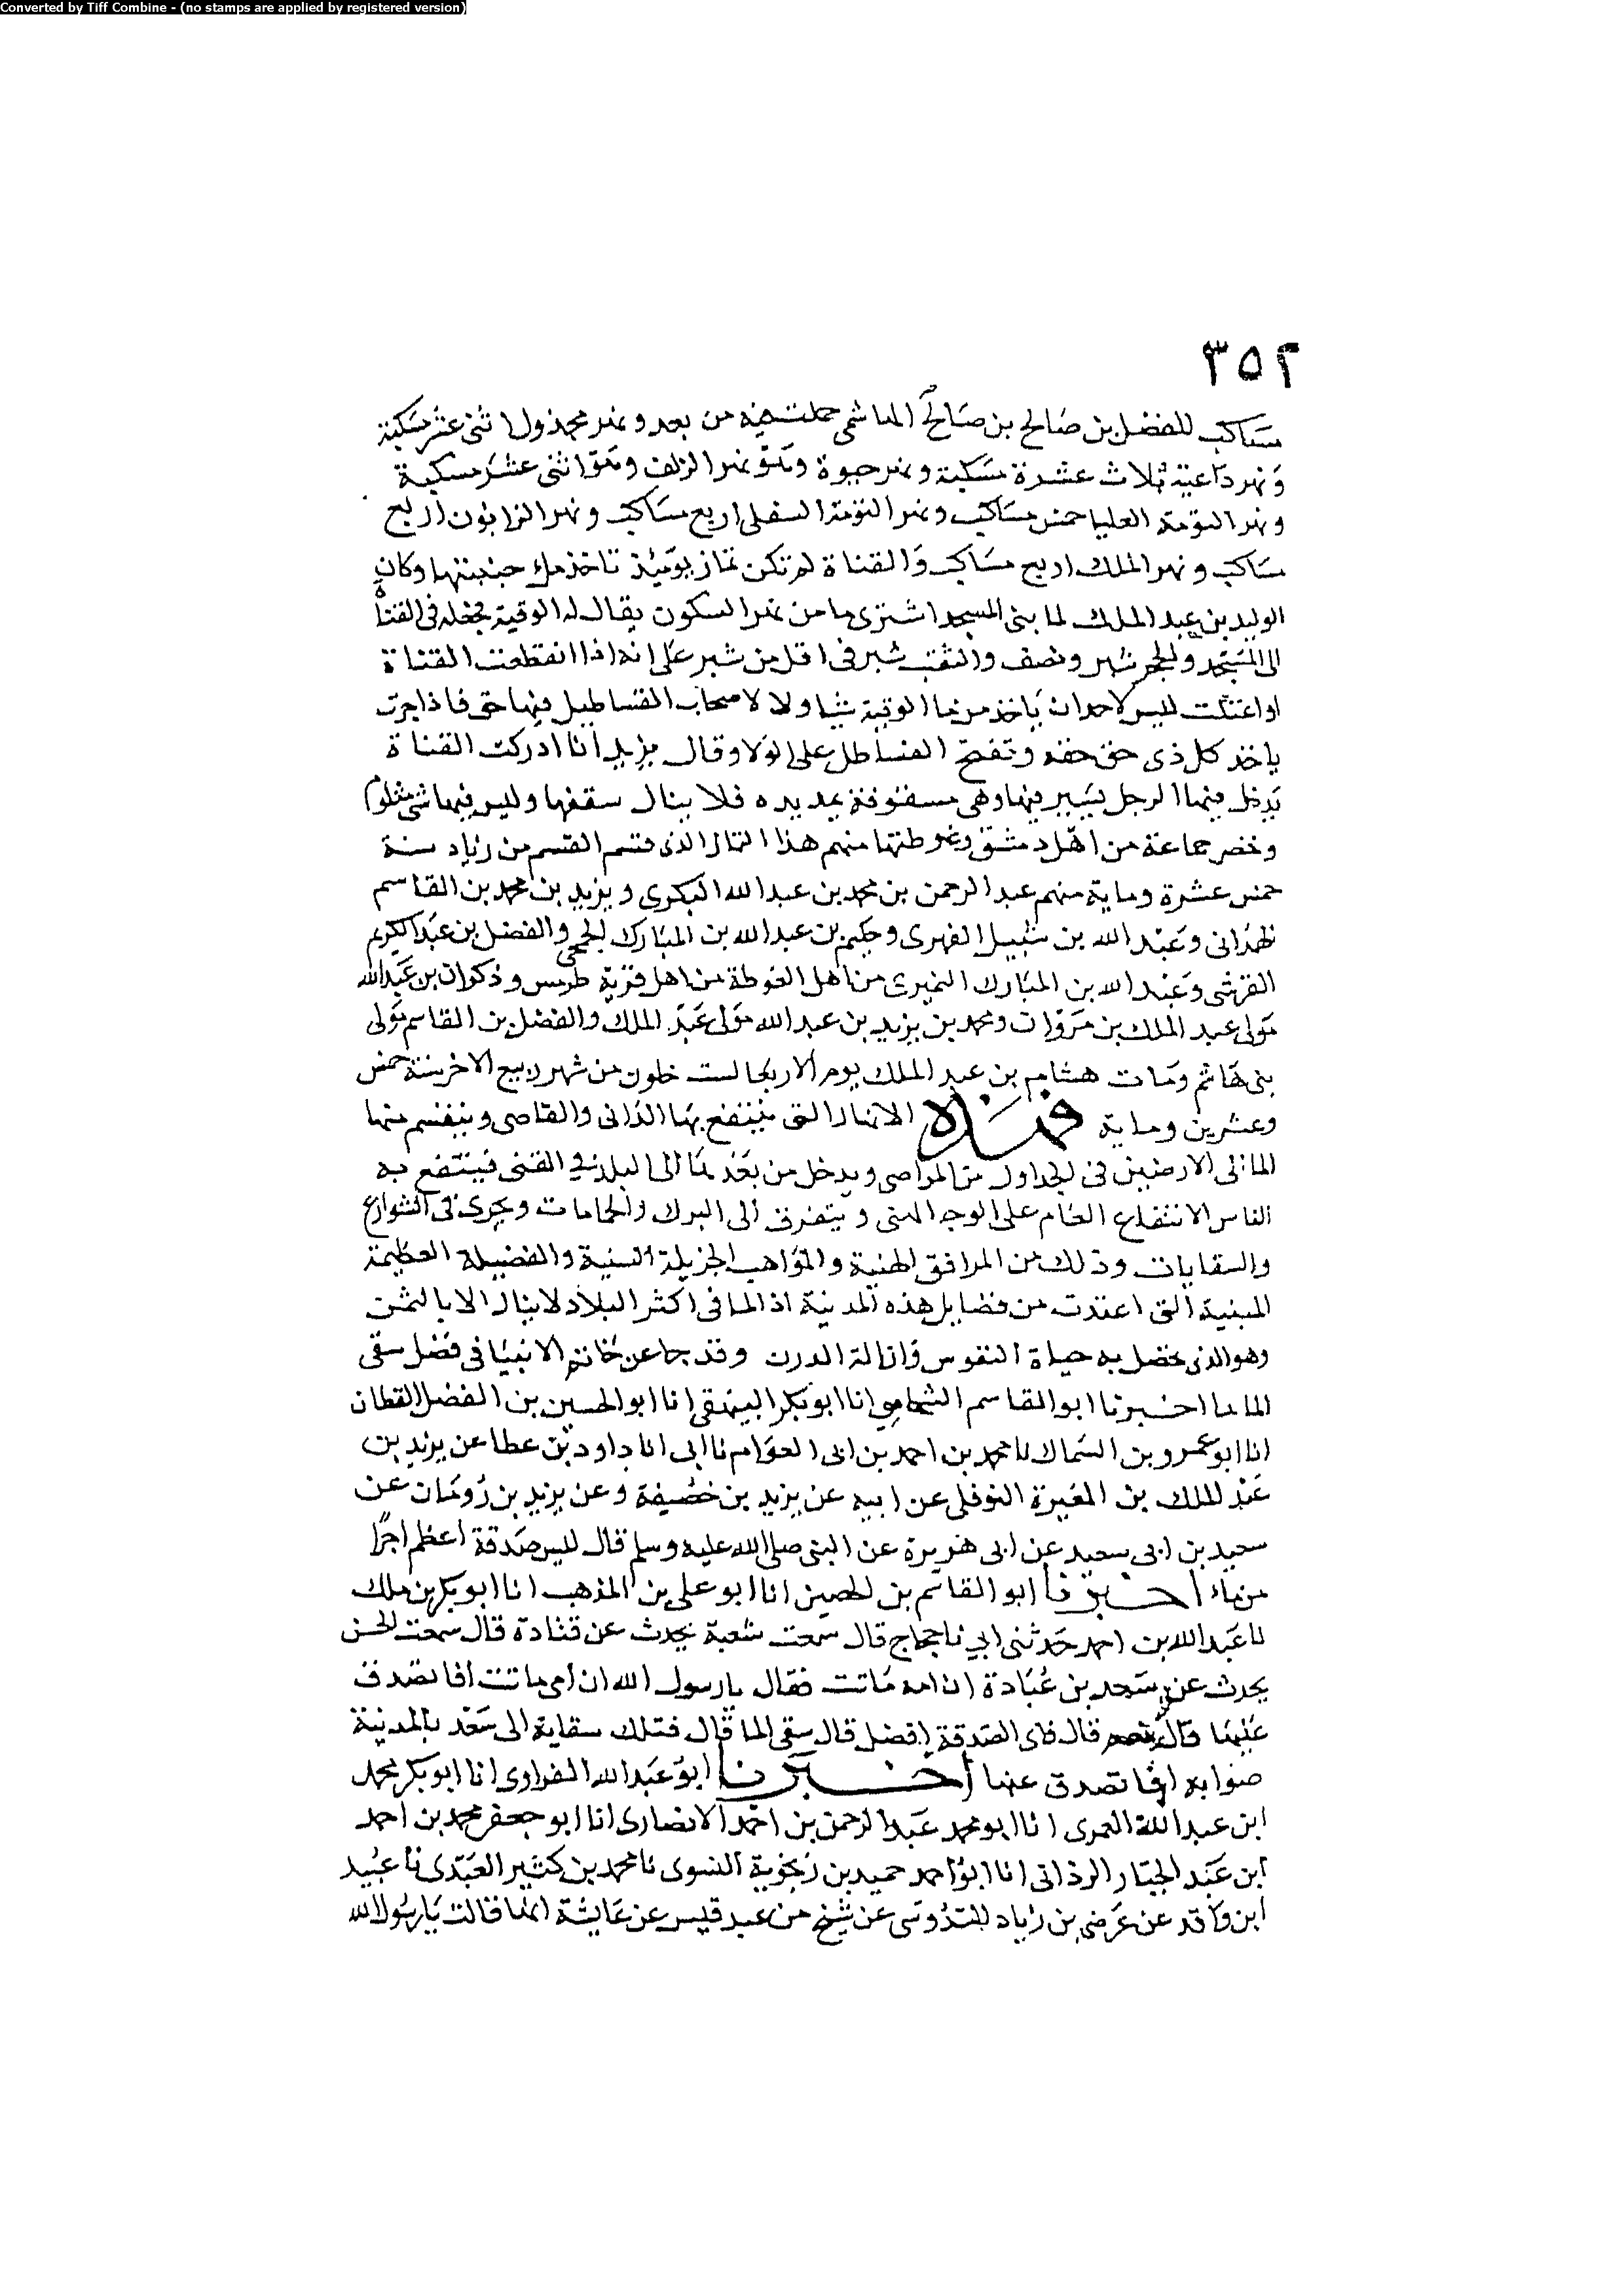 Converted by Tiff Combine - (no stamps are applied by registered version)
٣٥٢
مساكب للفضل بن صالح بن صالح الهاشمى حملت فيه من بعد ونهر مجذول اثنى عشر مسكبة
ونهر داعية ثلاث عشرة مسكبة ونهر حيوة وهو نهر الزلف وهو اثنى عشر مسكبة
ونهر التومة العليا خمس مساكب ونهر التومة السفلى اربع مساكب ونهر الزابون اربع
مساكب ونهر الملك اربع مساكب والقناة لم تكن تماز يومئذ تاخذ ملء جنبتها وكان
الوليد بن عبد الملك لما بنى المسجد اشترى ما من نهر السكون يقال له الوقية فجعله فى القناة
الى المسجد والحجر شبر ونصف والثقب شبر فى اقل من شبر على انه اذا انقطعت القناة
او اعتلت ليس لاحد ان ياخذ من ما الوقية شيا ولا لاصحاب القساطل فيها حق فاذا جرت
ياخذ كل ذى حق حقه وتفتح القساطل على الولا وقال يزيد انا ادركت القناة
يدخل فيها الرجل يسير فيها وهى مسقوفة يمد يده فلا ينال سقفها وليس فيها شى مثلوم
وحضر جماعة من اهل دمشق وغوطتها منهم هذا التماز الذى قسم القسم من زياد سنة
خمس عشرة وماية منهم عبد الرحمن بن محمد بن عبد الله البكرى ويزيد بن محمد بن القاسم
الهمدانى وعبد الله بن شبيل الفهرى وحكيم بن عبد الله بن المبارك الجمحى والفضل بن عبد الكريم
القرشى وعبد الله بن المبارك النميرى من اهل الغوطة من اهل قرية طرميس وذكوان بن عبد الله
مولى عبد الملك بن مروان ومحمد بن يزيد بن عبد الله مولى عبد الملك والفضل بن القاسم مولى
بنى هاشم ومات هشام بن عبد الملك يوم الاربعا لست خلون من شهر ربيع الاخر سنة خمس
وعشرين وماية فهذه الانهار التى ينتفع بها الدانى والقاصى وينقسم منها
الما الى الارضين فى الجداول من المراصى ويدخل من بعد لما الى البلد فى القنى فينتفع به
الناس الانتفاع العام على الوجه الهنى ويتفرق الى البرك والحمامات ويجرى فى الشوارع
والسقايات وذلك من المرافق الهنية والمواهب الجزيلة السنية والفضيلة العظيمة
المبنية التى اعتدت من فضايل هذه المدينة اذ الما فى اكثر البلاد لا ينال الا بالثمن
وهو الذى تحصل به حياة النفوس وازالة الدرن وقد جا عن خاتم الانبيا فى فضل سقى
الما ما اخبرنا ابو القاسم الشحامى انا ابو بكر البيهقى انا ابو الحسين بن الفضل القطان
انا ابو عمرو بن السماك نا محمد بن احمد بن ابى العوام نا ابى انا داود بن عطا عن يزيد بن
عبد الملك بن المغيرة النوفلى عن ابيه عن يزيد بن خصيفة وعن يزيد بن رومان عن
سعيد بن ابى سعيد عن ابى هريرة عن النبى صلى الله عليه وسلم قال ليس صدقة اعظم اجرا
من ماء اخبرنا ابو القاسم بن الحصين انا ابو على بن المذهب انا ابو بكر بن ملك
نا عبد الله بن احمد حدثنى ابي نا حجاج قال سمعت شعبة يحدث عن قتادة قال سمعت الحسن
يحدث عن سعد بن عبادة ان امه ماتت فقال يا رسول الله ان امى ماتت افاتصدق
عليها قال نعم قال فاى الصدقة افضل قال سقى الما قال فتلك سقاية ال سعد بالمدينة
صوابه افاتصدق عنها اخبرنا ابو عبد الله الفراوى انا ابو بكر محمد
ابن عبد الله العمرى انا ابو محمد عبد الرحمن بن احمد الانصارى انا ابو جعفر محمد بن احمد
ابن عبد الجبار الرذانى انا ابو احمد حميد بن زنجوية النسوى نا محمد بن كثير العبدى نا عبيد
ابن واقد عن عرضى بن زياد السدوسى عن شيخ من عبد قيس عن عايشة انها قالت يا رسول الله